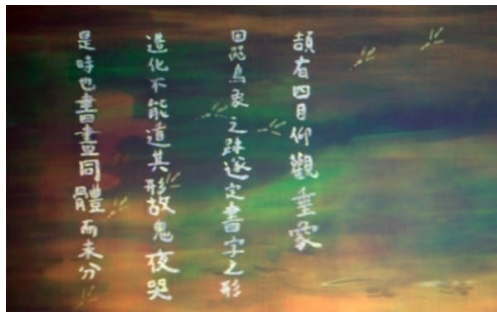 頡有四目仰觀垂象
因鳥象之跡遂定書字之形
造化不能遁其形故鬼夜哭
是時也書畫同體而未分